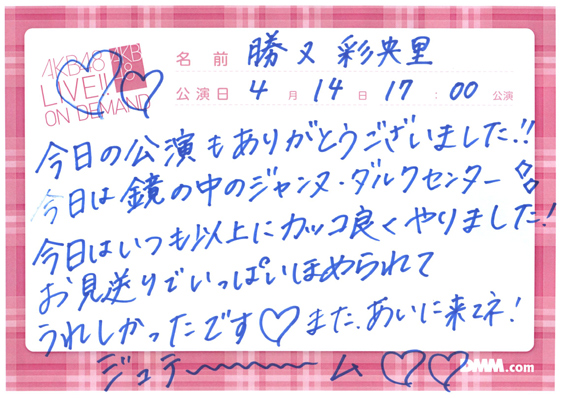 AKB48
LIVE!!
ON DEMAND
AKB
48
名前 勝又 彩央里
公演日 4月14日 17:00 公演
今日の公演もありがとうございました!!
今日は鏡の中のジャンヌ・ダルクセンター
今日はいつも以上にカッコ良くやりました!
お見送りでいっぱいほめられて
うれしかったです♡また、あいに来てネ!
ジュテ〜〜〜ム♡♡
DMM.com